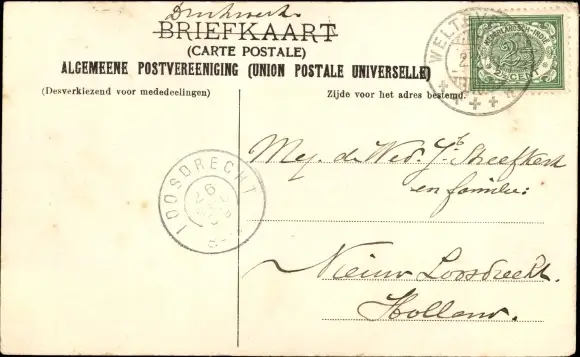 Drukwerk
BRIEFKAART
(CARTE POSTALE)
ALGEMEENE POSTVEREENIGING (UNION POSTALE UNIVERSELLE)
(Desverkiezend voor mededeelingen)
Zijde voor het adres bestemd.
NEDERLANDSCH-INDIË
2½
2½ CENT
WELTEV
LOOSDRECHT
Mej. de Wed. Streefkerk
en familie:
Nieuw Loosdrecht.
Holland.